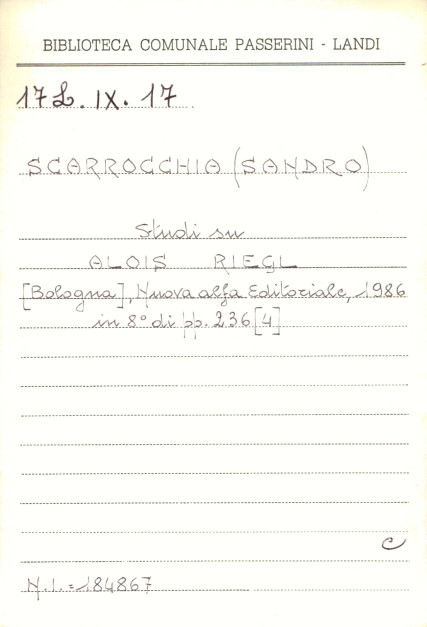 BIBLIOTECA COMUNALE PASSERINI - LANDI
17L.IX.17
SCARROCCHIA (SANDRO)
Studi su
ALOIS RIEGL
[Bologna], Nuova alfa Editoriale, 1986
in 8° di pp. 236 [4]
C
N.I.=184867